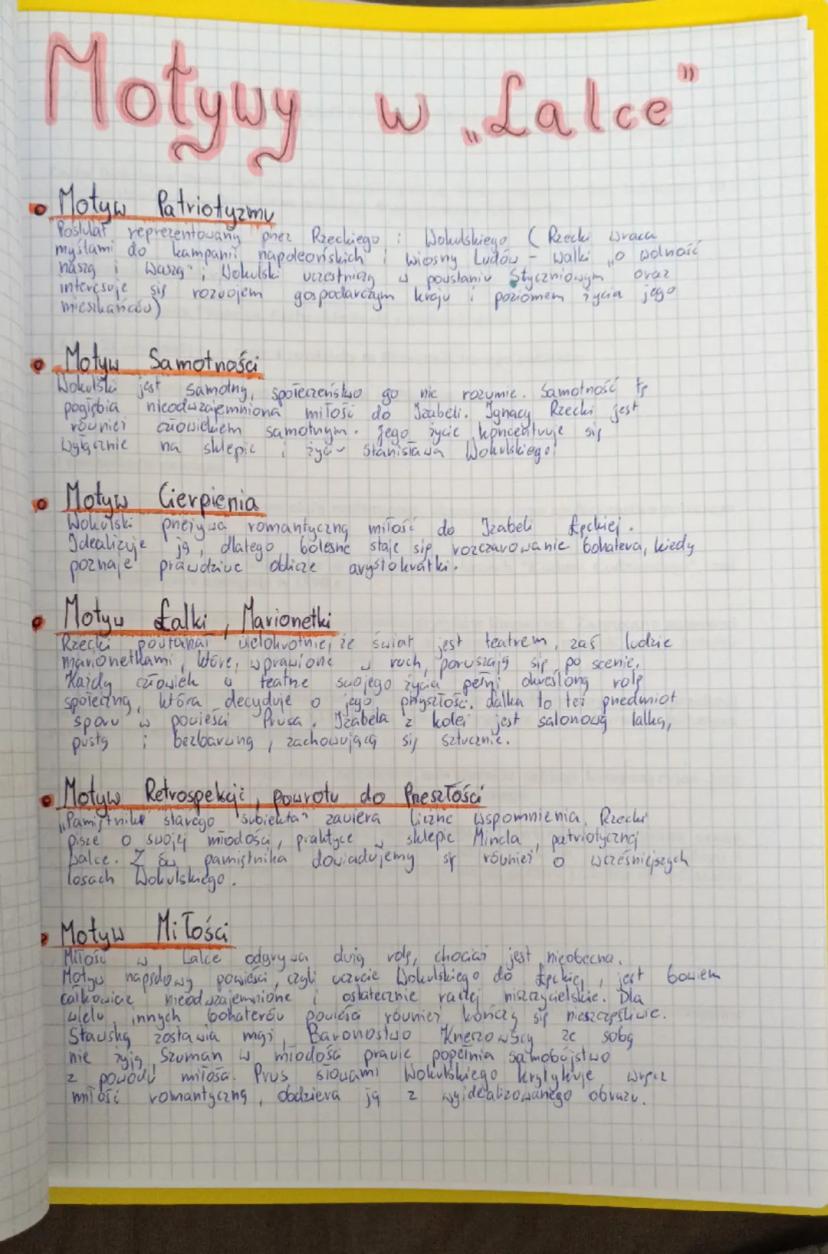 Motywy w „Lalce"
Motyw Patriotyzmu
Postulat reprezentowany przez Rzeckiego i Wokulskiego (Rzecki wraca
myślami do kampanii napoleońskich i wiosny Ludów - walki „o wolność
naszą i waszą"; Wokulski uczestniczą w powstaniu Styczniowym oraz
interesuje się rozwojem gospodarczym kraju i poziomem życia jego
mieszkańców)
Motyw Samotności
Wokulski jest samotny, społeczeństwo go nie rozumie. Samotność tę
pogłębia nieodwzajemniona miłość do Izabeli. Ignacy Rzecki jest
również człowiekiem samotnym. Jego życie koncentruje się
wyłącznie na sklepie i życiu Stanisława Wokulskiego.
Motyw Cierpienia
Wokulski przeżywa romantyczną miłość do Izabeli Łęckiej.
Idealizuje ją, dlatego bolesne staje się rozczarowanie bohatera, kiedy
poznaje prawdziwe oblicze arystokratki.
Motyw Lalki, Marionetki
Rzecki powtarzał wielokrotnie, że świat jest teatrem, zaś ludzie
marionetkami, które, wprawione w ruch, poruszają się po scenie.
Każdy człowiek w teatrze swojego życia pełni określoną rolę
społeczną, która decyduje o jego przyszłości. Lalka to też przedmiot
sporu w powieści Prusa. Izabela z kolei jest salonową lalką,
pustą i bezbarwną, zachowującą się sztucznie.
Motyw Retrospekcji, powrotu do Przeszłości
„Pamiętnik starego subiekta" zawiera liczne wspomnienia. Rzecki
pisze o swojej młodości, praktyce w sklepie Mincla, patriotycznej
walce. Z ów pamiętnika dowiadujemy się również o wcześniejszych
losach Wokulskiego.
Motyw Miłości
Miłość w Lalce odgrywa dużą rolę, chociaż jest nieobecna.
Motyw napędowy powieści, czyli uczucie Wokulskiego do Łęckiej, jest bowiem
całkowicie nieodwzajemnione i ostatecznie raczej niszczycielskie. Dla
wielu innych bohaterów powieści również kończy się nieszczęśliwie.
Stawską zostawia mąż, Baronostwo Krzeszowscy ze sobą
nie żyją, Szuman w młodości prawie popełnia samobójstwo
z powodu miłości. Prus słowami Wokulskiego krytykuje wręcz
miłość romantyczną, obdziera ją z wyidealizowanego obrazu.